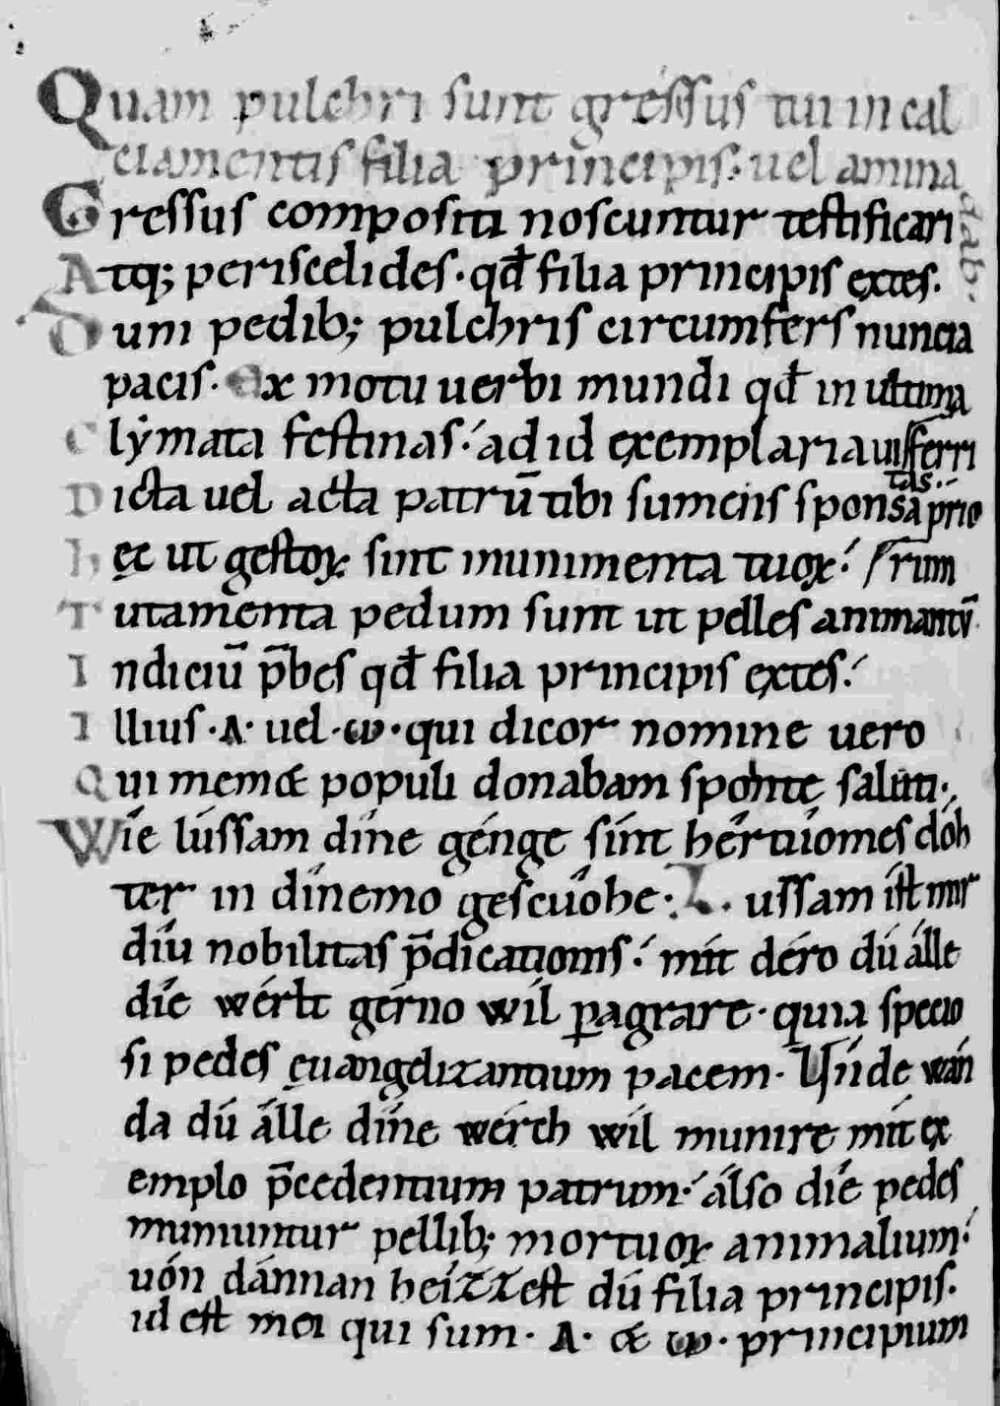 Quam pulchri sunt gressus tui in cal
ciamentis filia principis: uel amina
dab.
Gressus compositi noscuntur testificari
Atq; periscelides. qđ filia principis extes.
Dum pedib; pulchris circumfers nuncia
pacis. Ex motu uerbi mundi qđ in ultima
Clẏmata festinas: ad id exemplaria uis ferri
Dicta uel acta patrū tibi sumens sponsa prio
tas..
hęc ut gestoꝝ sint munimenta tuoꝝ: rum
Tutamenta pedum sunt ut pelles animantū
Indiciū p̄bes qđ filia principis extes:
Illius .A. uel .ω. qui dicor nomine uero
Qui memet populi donabam sponte saluti.
Wíe lússam díne génge sínt hértuomes doh
ter in dínemo gescúohe: L. ussam íst mir
díu nobilitas p̄dicationis: mít déro dú álle
díe wérlt gérno wíl ꝑagrare. quia specio
si pedes euangelizantium pacem. Unde wán
da dú álle díne wérch wíl munire mít ex
emplo p̄cedentium patrum: álso díe pedes
muniuntur pellib; mortuoꝝ animalium:
uón dánnan heízzest dú filia principis.
id est mei qui sum. A. et ω. principium